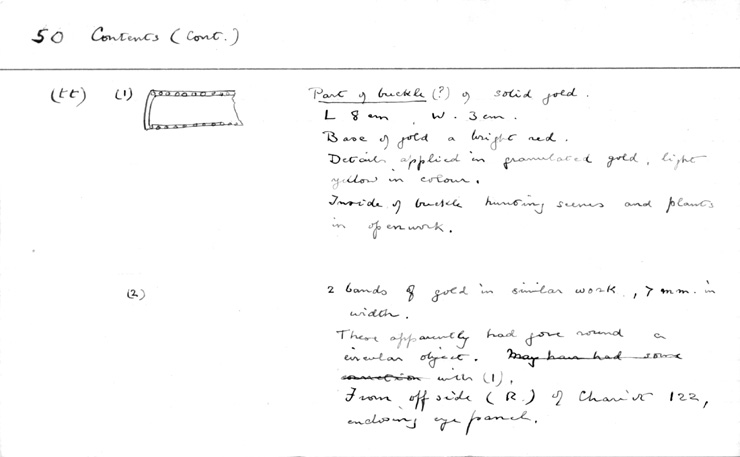 50 Contents (Cont.)
(tt) (1) Part of buckle (?) of solid gold.
L 8 cm, W. 3 cm.
Base of gold a bright red.
Details applied in granulated gold, light
yellow in colour.
Inside of buckle hunting scenes and plants
in openwork.
(2) 2 bands of gold in similar work, 7 mm. in
width.
These apparently had gone round a
circular object. May have had some
connection with (1).
From off side (R.) of Chariot 122,
enclosing eye panel.